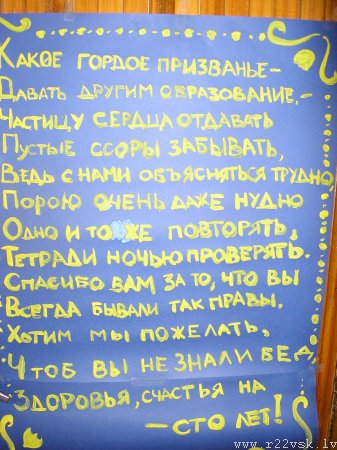 Какое гордое призванье –
Давать другим образование, –
Частицу сердца отдавать
Пустые ссоры забывать,
Ведь с нами объясняться трудно,
Порою очень даже нудно
Одно и то же повторять,
Тетради ночью проверять.
Спасибо вам за то, что вы
Всегда бывали так правы.
Хотим мы пожелать,
Чтоб вы не знали бед,
Здоровья, счастья на
– сто лет!
www.r22vsk.lv